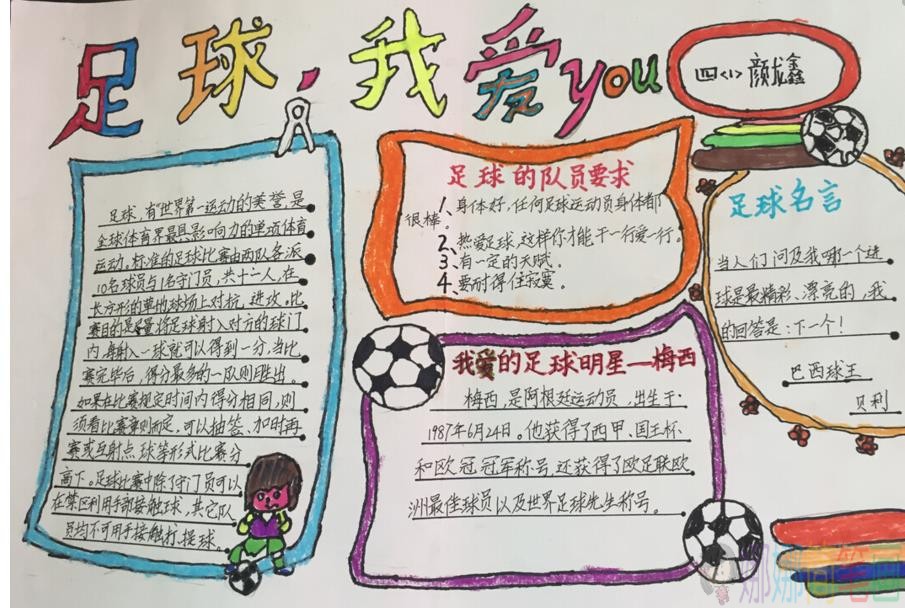 足球，我爱you
四<1>颜龙鑫
足球，有世界第一运动的美誉，是
全球体育界最具影响力的单项体育
运动。标准的足球比赛由两队各派
10名球员与1名守门员，共十一人，在
长方形的草地球场上对抗、进攻。比
赛目的是尽量将足球射入对方的球门
内，每射入一球就可以得到一分，当比
赛完毕后，得分最多的一队则胜出。
如果在比赛规定时间内得分相同，则
须看比赛章则而定，可以抽签、加时再
赛或互射点球等形式比赛分
高下。足球比赛中除了守门员可以
在禁区利用手部接触球，其它队
员均不可用手接触打、提球。
足球的队员要求
1、身体好，任何足球运动员身体都
很棒。
2、热爱足球，这样你才能干一行爱一行。
3、有一定的天赋。
4、要耐得住寂寞。
我爱的足球明星—梅西
梅西，是阿根廷运动员，出生于
1987年6月24日。他获得了西甲、国王杯
和欧冠冠军称号，还获得了欧足联欧
洲最佳球员以及世界足球先生称号。
足球名言
当人们问及我哪一个进
球是最精彩、漂亮的，我
的回答是：下一个！
巴西球王
贝利
娜娜简笔画